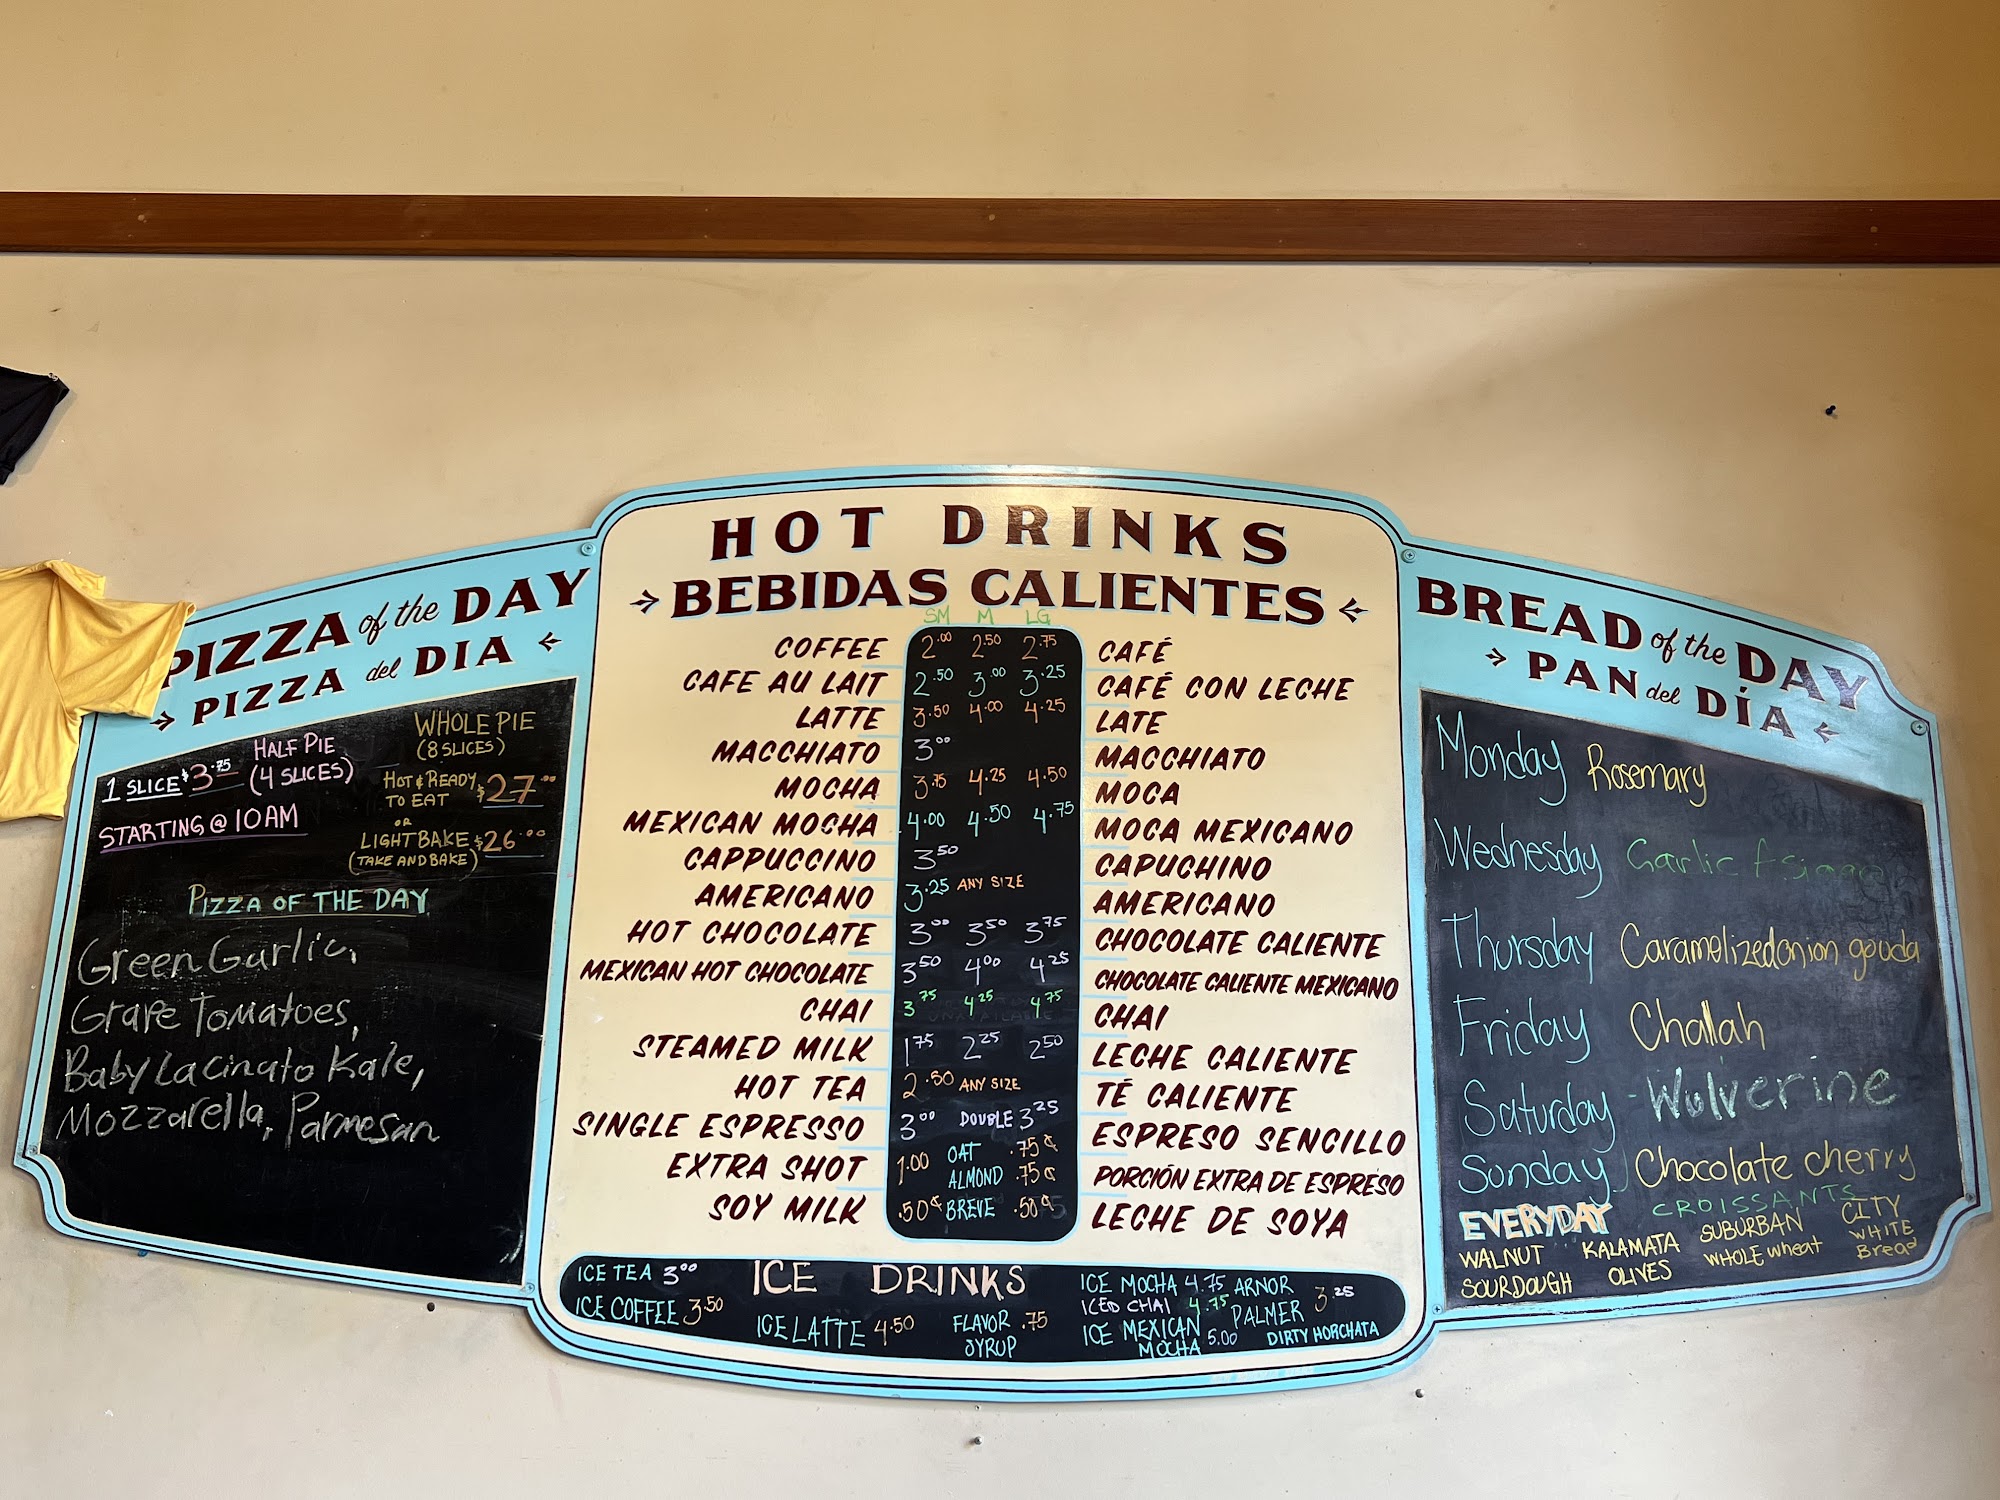 PIZZA of the DAY
PIZZA del DIA
1 SLICE $3.75
HALF PIE
(4 SLICES)
WHOLE PIE
(8 SLICES)
HOT & READY
TO EAT $27.00
OR
LIGHT BAKE $26.00
(TAKE AND BAKE)
STARTING @ 10AM
PIZZA OF THE DAY
Green Garlic,
Grape Tomatoes,
Baby Lacinato Kale,
Mozzarella, Parmesan
HOT DRINKS
BEBIDAS CALIENTES
SM M LG
COFFEE 2.00 2.50 2.75 CAFÉ
CAFE AU LAIT 2.50 3.00 3.25 CAFÉ CON LECHE
LATTE 3.50 4.00 4.25 LATE
MACCHIATO 3.00 MACCHIATO
MOCHA 3.75 4.25 4.50 MOCA
MEXICAN MOCHA 4.00 4.50 4.75 MOCA MEXICANO
CAPPUCCINO 3.50 CAPUCHINO
AMERICANO 3.25 ANY SIZE AMERICANO
HOT CHOCOLATE 3.00 3.50 3.75 CHOCOLATE CALIENTE
MEXICAN HOT CHOCOLATE 3.50 4.00 4.25 CHOCOLATE CALIENTE MEXICANO
CHAI 3.75 4.25 4.75 CHAI
STEAMED MILK 1.75 2.25 2.50 LECHE CALIENTE
HOT TEA 2.50 ANY SIZE TÉ CALIENTE
SINGLE ESPRESSO 3.00 DOUBLE 3.25 ESPRESO SENCILLO
EXTRA SHOT 1.00 OAT .75¢ PORCIÓN EXTRA DE ESPRESO
ALMOND .75¢
SOY MILK .50¢ BREVE .50¢ LECHE DE SOYA
ICE DRINKS
ICE TEA 3.00
ICE COFFEE 3.50
ICE LATTE 4.50
FLAVOR .75
SYRUP
ICE MOCHA 4.75
ICED CHAI 4.75
ICE MEXICAN
MOCHA 5.00
ARNOR
PALMER 3.25
DIRTY HORCHATA
BREAD of the DAY
PAN del DÍA
Monday Rosemary
Wednesday Garlic
Thursday Caramelized onion gouda
Friday Challah
Saturday - Wolverine
Sunday Chocolate cherry
EVERYDAY CROISSANTS
WALNUT
SOURDOUGH
KALAMATA
OLIVES
SUBURBAN
WHOLE wheat
CITY
WHITE
Bread